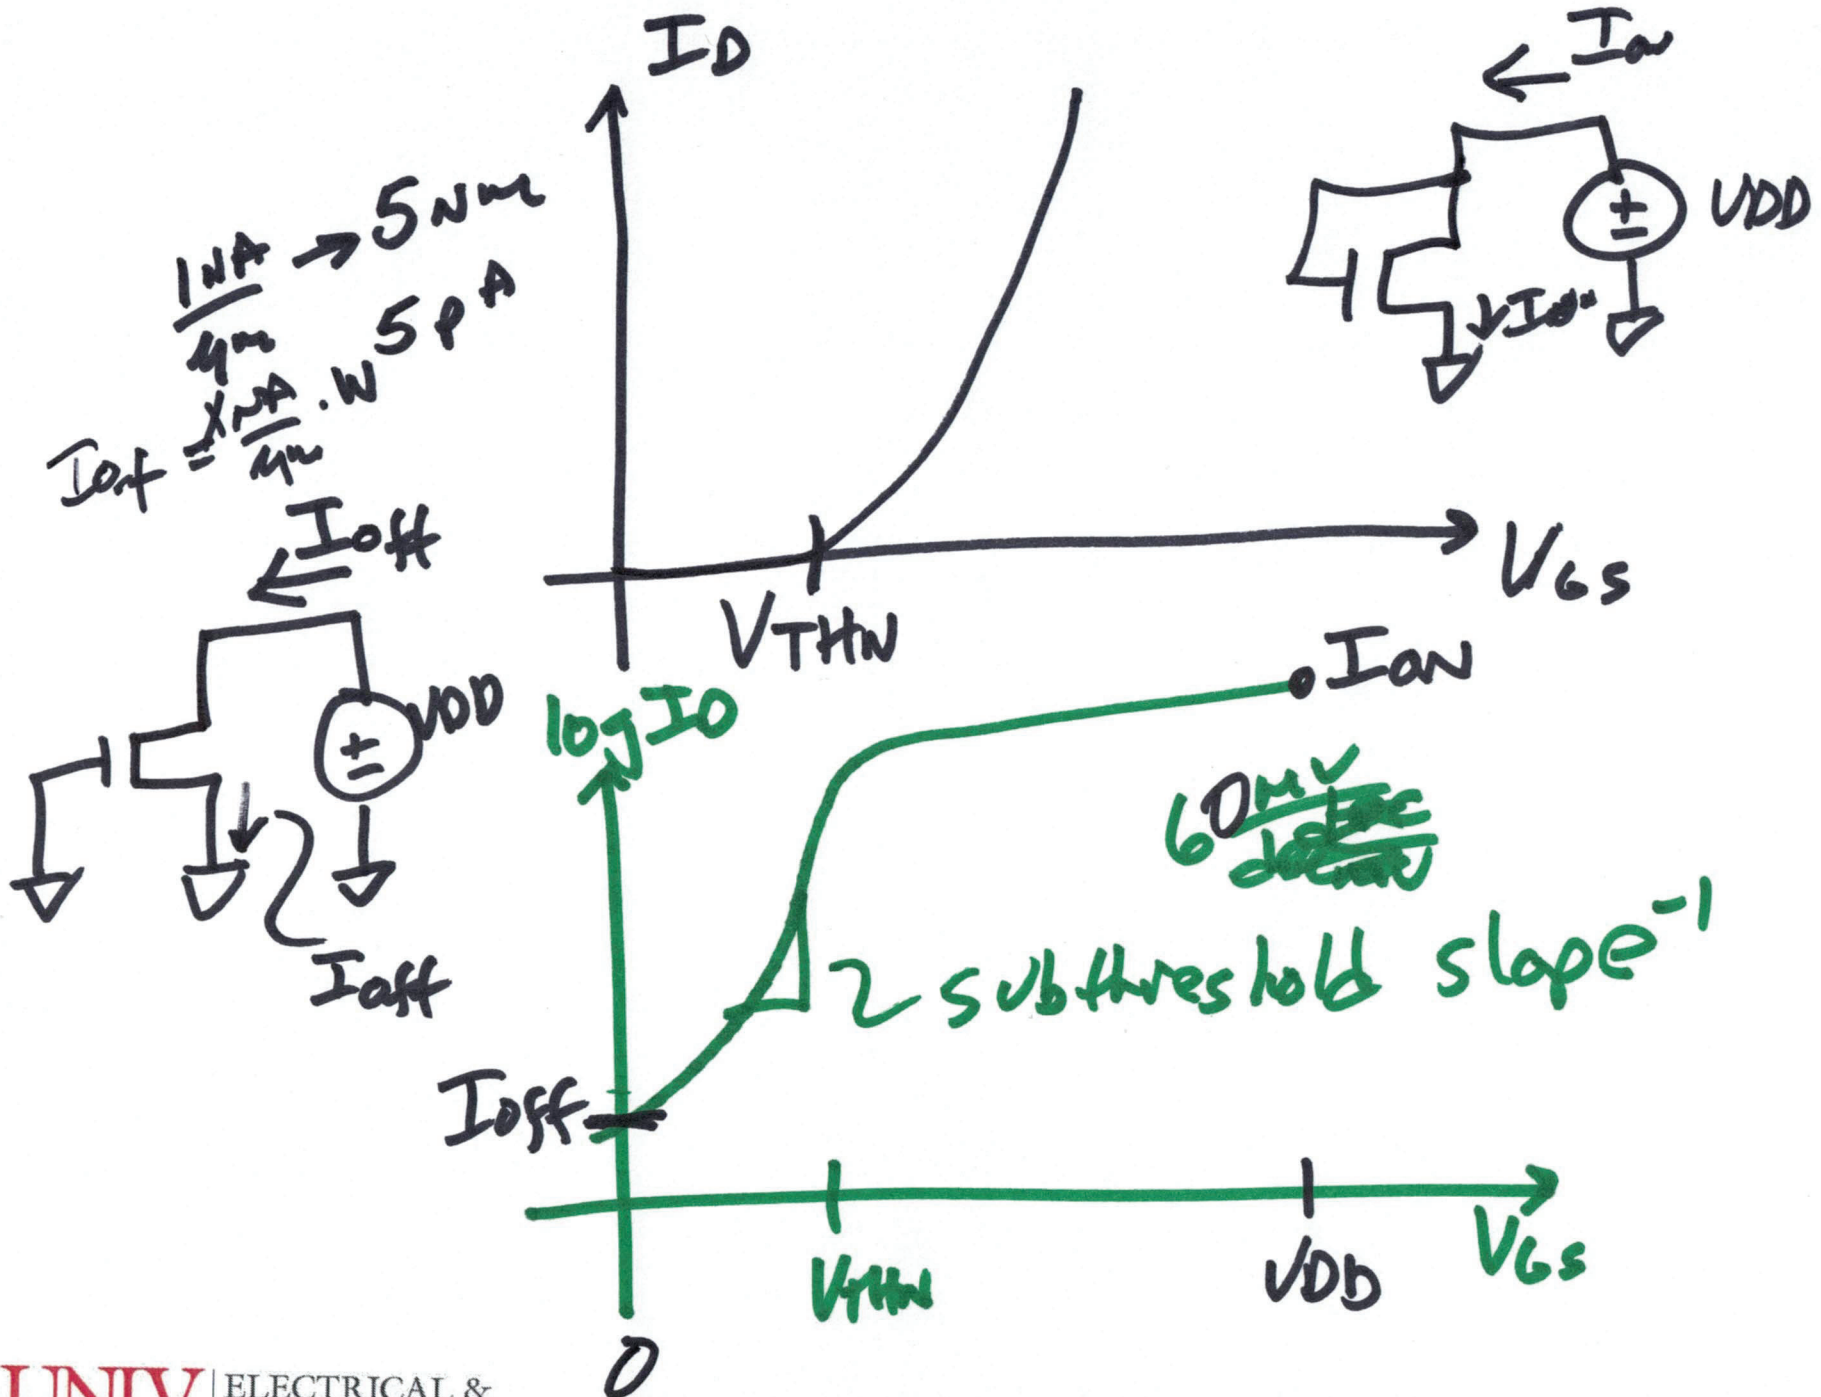 ID
Ion
1NA/μm → 5Nm
5pA
Ioff = XNA/μm · W
VDD
↓Ion
Ioff
VGS
VTHN
ION
VDD
log ID
60 mV
subthreshold slope⁻¹
Ioff
Ioff
VTHN
VDD
VGS
0
UNLV | ELECTRICAL &